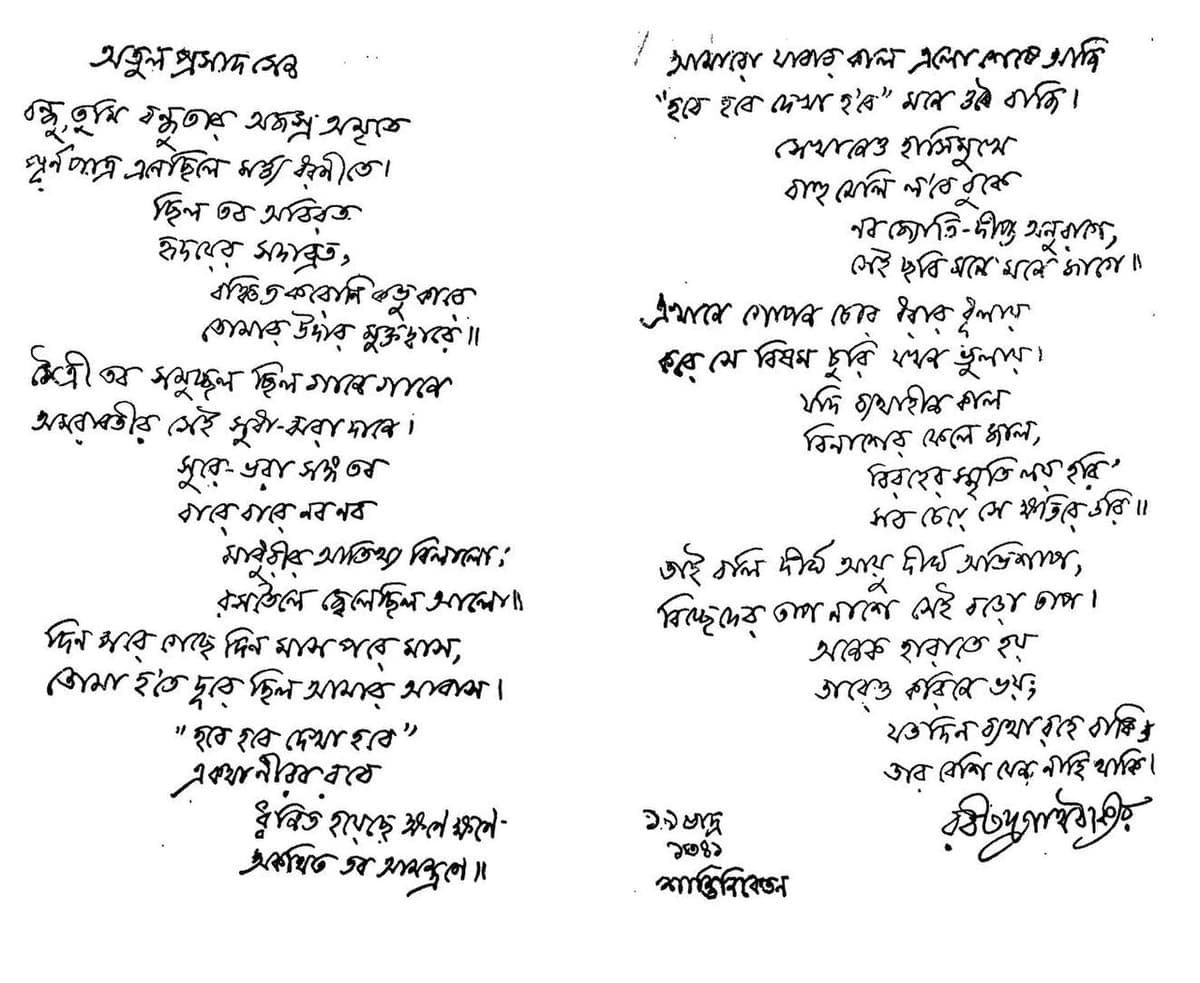 অতুলপ্রসাদ সেন
বন্ধু, তুমি বন্ধুতার অজস্র অমৃতে
পূর্ণপাত্র এনেছিলে মর্ত্ত্য ধরণীতে।
ছিল তব অবিরত
হৃদয়ের সদাব্রত,
বঞ্চিত করোনি কভু কারে
তোমার উদার মুক্তদ্বারে॥
মৈত্রী তব সমুচ্ছল ছিল গানে গানে
অমরাবতীর সেই সুধা-ঝরা দানে।
সুরে-ভরা সঙ্গ তব
বারে বারে নব নব
মাধুরীর আতিথ্য বিলালো;
রসতৈলে জ্বেলেছিল আলো॥
দিন পরে গেছে দিন মাস পরে মাস,
তোমা হ'তে দূরে ছিল আমার আবাস।
"হবে হবে দেখা হবে"
একথা নীরব রবে
ধ্বনিত হয়েছে ক্ষণে ক্ষণে-
অকথিত তব আমন্ত্রণে॥
আমারো যাবার কাল এলো শেষে আজি
"হবে হবে দেখা হবে" মনে ওঠে বাজি।
সেখানেও হাসিমুখে
বাহু মেলি ল'বে বুকে
নব জ্যোতি-দীপ্ত অনুরাগে,
সেই ছবি মনে মনে জাগে॥
এখানে গোপন চোর ধরার ধূলায়
করে সে বিষম চুরি যখন ভুলায়।
যদি ব্যথাহীন কাল
বিনাশের ফেলে জাল,
বিরহের স্মৃতি লয় হরি'
সব চেয়ে সে ক্ষতিরে ডরি॥
তাই বলি দীর্ঘ আয়ু দীর্ঘ অভিশাপ,
বিচ্ছেদের তাপ নাশে সেই বড়ো তাপ।
অনেক হারাতে হয়
তারেও করিনে ভয়;
যতদিন ব্যথা রহে বাকি
তার বেশি যেন নাহি থাকি।
রবীন্দ্রনাথ ঠাকুর
১৯ ভাদ্র
১৩৪১
শান্তিনিকেতন